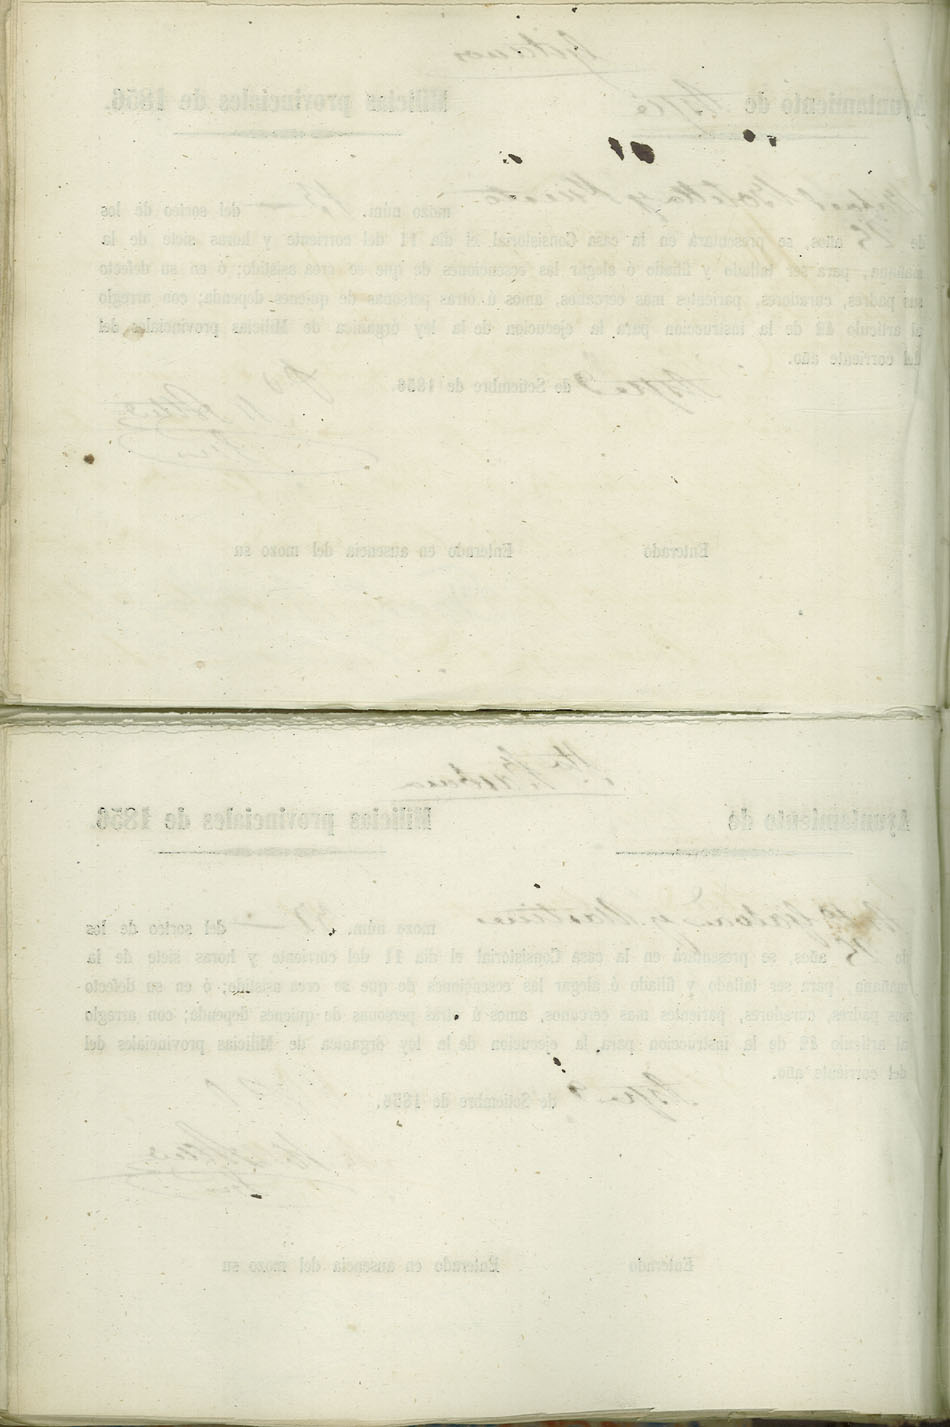 Ayuntamiento de Aspe
Milicias provinciales de 1856.
mozo núm. 13 del sorteo de los
de 23 años, se presentará en la casa Consistorial el dia 11 del corriente y horas siete de la
mañana, para ser tallado y filiado ó alegar las escenciones de que se crea asistido; ó en su defecto
sus padres, curadores, parientes mas cercanos, amos ú otras personas de quienes dependa; con arreglo
al artículo 42 de la instruccion para la ejecucion de la ley órganica de Milicias provinciales del
del corriente año.
Aspe 9 de Setiembre de 1856.
Enterado
Enterado en ausencia del mozo su
Ayuntamiento de
Milicias provinciales de 1856.
y Martinez mozo núm. del sorteo de los
de 23 años, se presentará en la casa Consistorial el dia 11 del corriente y horas siete de la
mañana, para ser tallado y filiado ó alegar las escenciones de que se crea asistido; ó en su defecto
sus padres, curadores, parientes mas cercanos, amos ú otras personas de quienes dependa; con arreglo
al artículo 42 de la instruccion para la ejecucion de la ley órganica de Milicias provinciales del
del corriente año.
Aspe 9 de Setiembre de 1856.
Enterado
Enterado en ausencia del mozo su